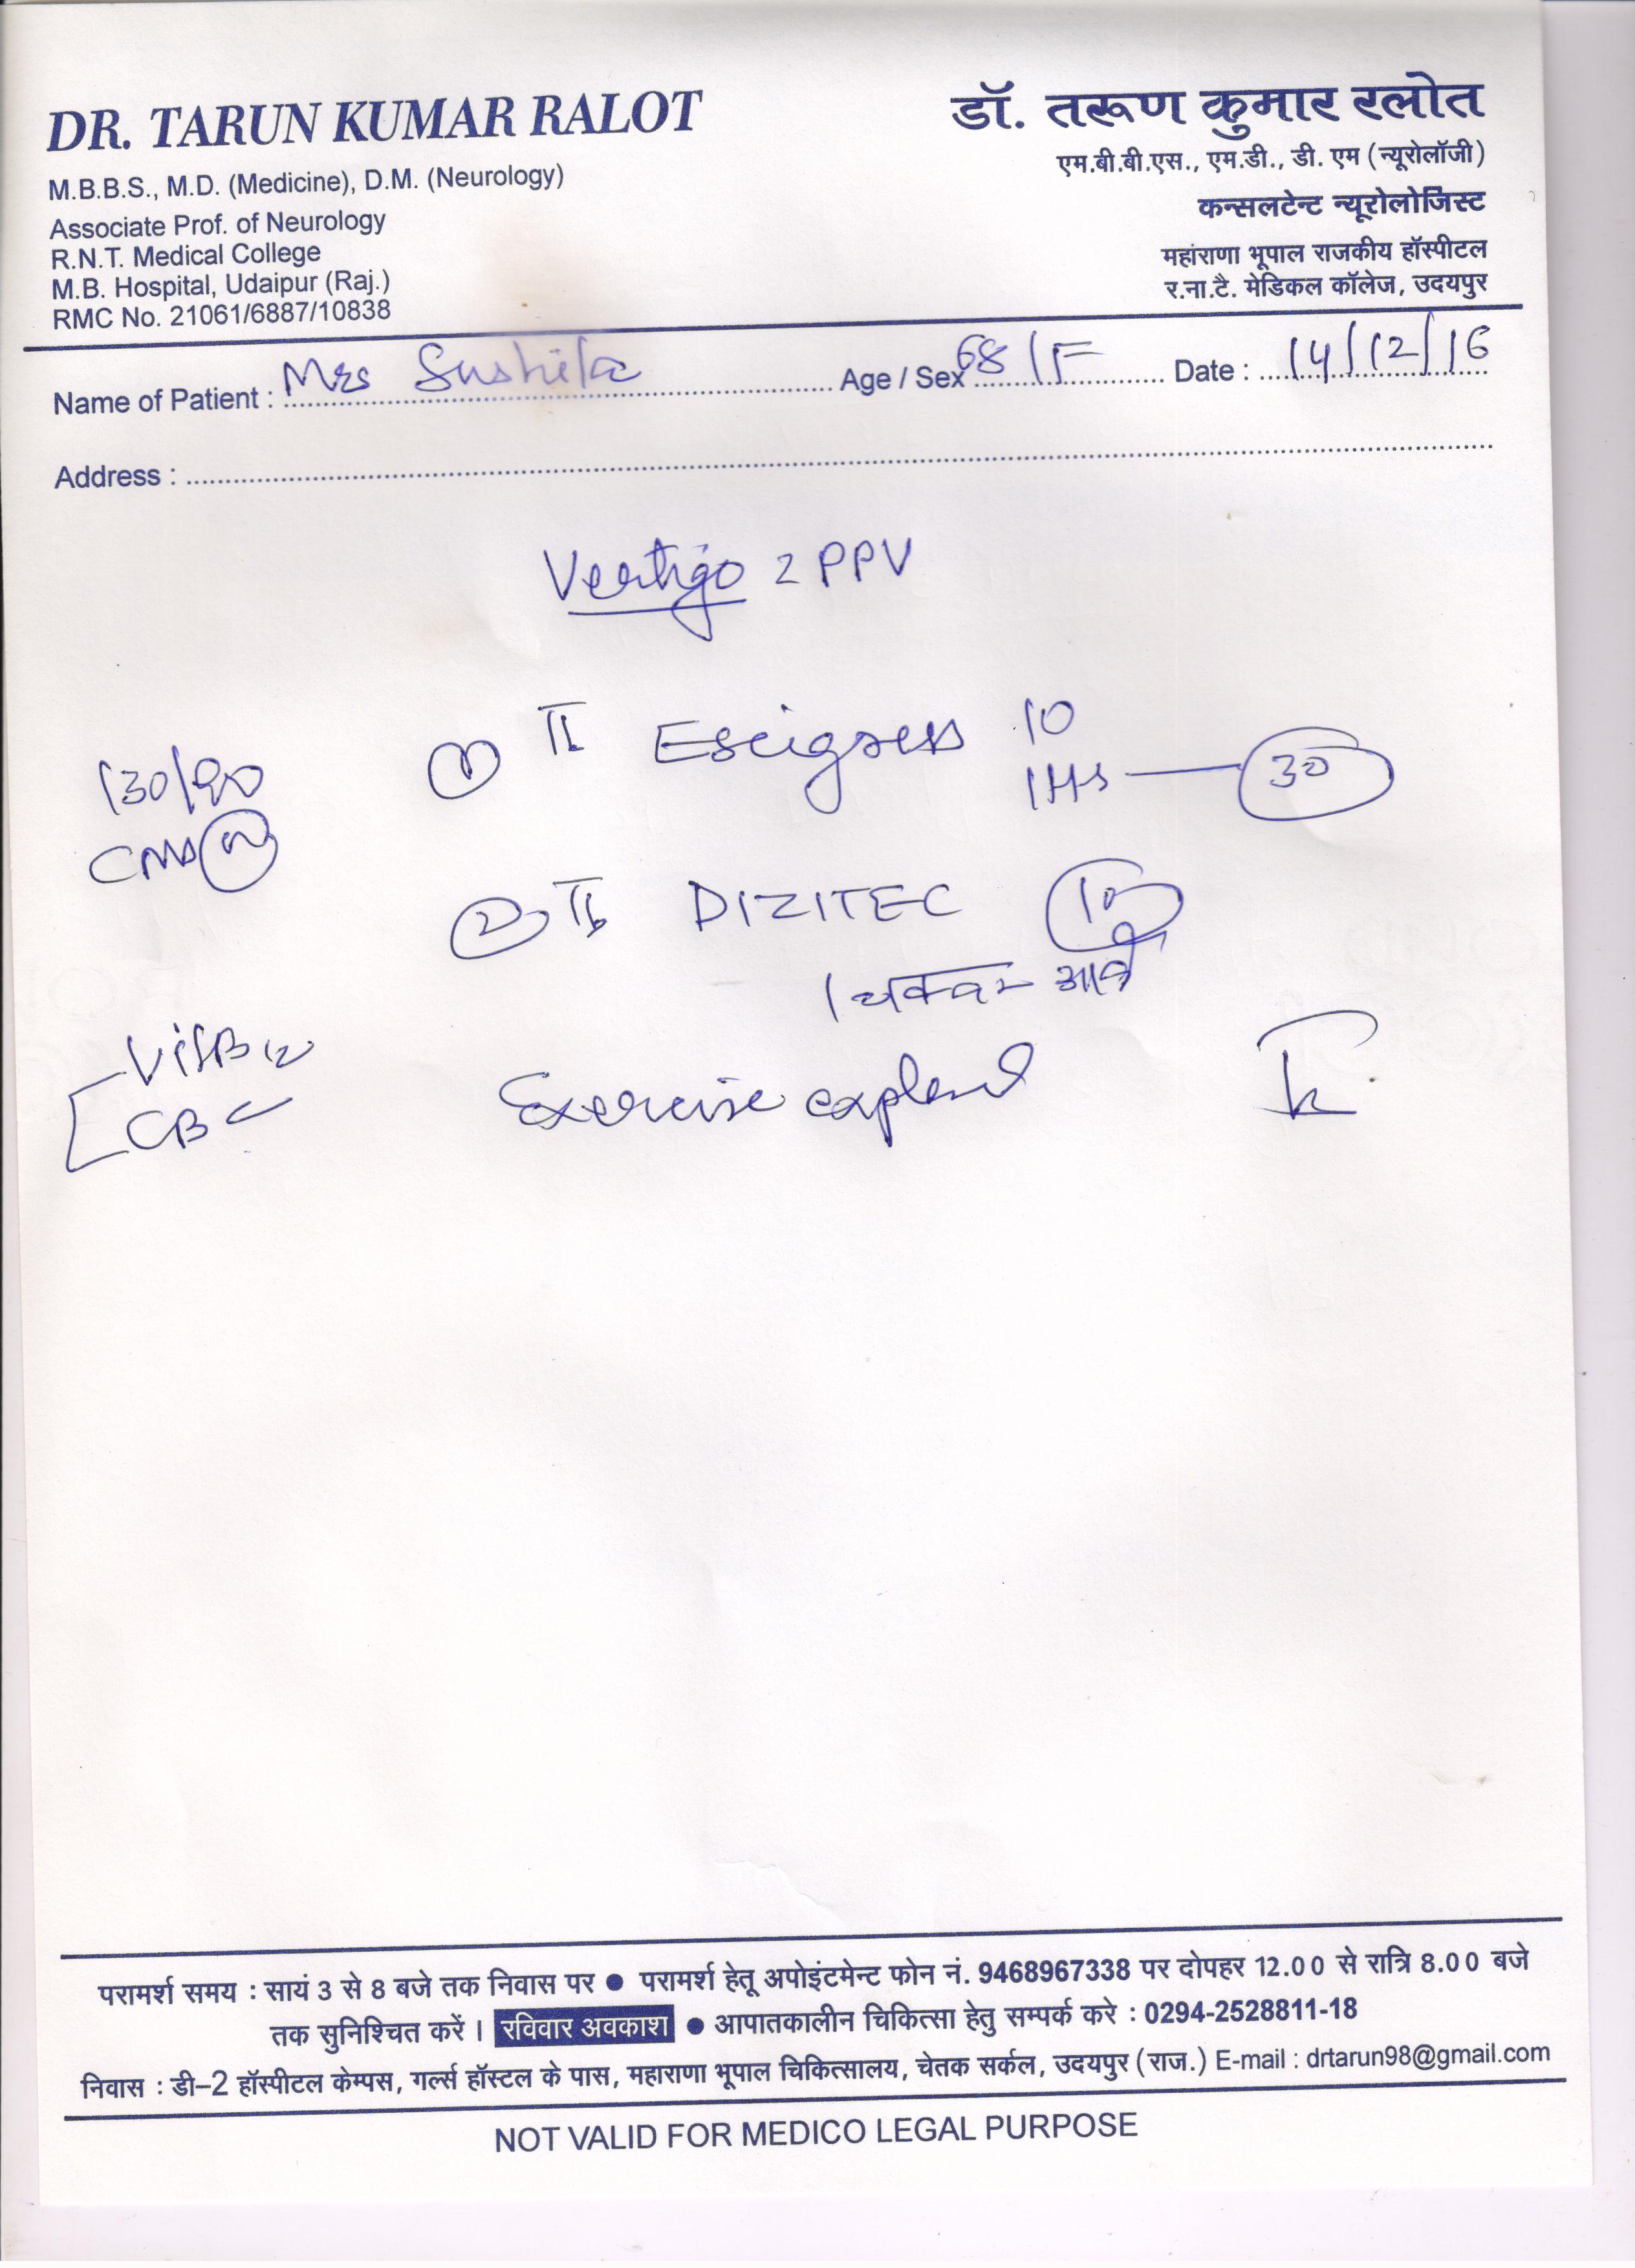 DR. TARUN KUMAR RALOT
M.B.B.S., M.D. (Medicine), D.M. (Neurology)
Associate Prof. of Neurology
R.N.T. Medical College
M.B. Hospital, Udaipur (Raj.)
RMC No. 21061/6887/10838
डॉ. तरूण कुमार रलोत
एम.बी.बी.एस., एम.डी., डी. एम (न्यूरोलॉजी)
कन्सलटेन्ट न्यूरोलोजिस्ट
महांराणा भूपाल राजकीय हॉस्पीटल
र.ना.टै. मेडिकल कॉलेज, उदयपुर
Name of Patient : Mrs Sushila Age / Sex 68/F Date : 14/12/16
Address :
Vertigo 2 PPV
1 10
130/90 1HS 30
2 DIZITEC 10
1 चक्कर आने
VitB12
CBC Exercise
परामर्श समय : सायं 3 से 8 बजे तक निवास पर ● परामर्श हेतू अपोइंटमेन्ट फोन नं. 9468967338 पर दोपहर 12.00 से रात्रि 8.00 बजे
तक सुनिश्चित करें । रविवार अवकाश ● आपातकालीन चिकित्सा हेतु सम्पर्क करे : 0294-2528811-18
निवास : डी–2 हॉस्पीटल केम्पस, गर्ल्स हॉस्टल के पास, महाराणा भूपाल चिकित्सालय, चेतक सर्कल, उदयपुर (राज.) E-mail : drtarun98@gmail.com
NOT VALID FOR MEDICO LEGAL PURPOSE